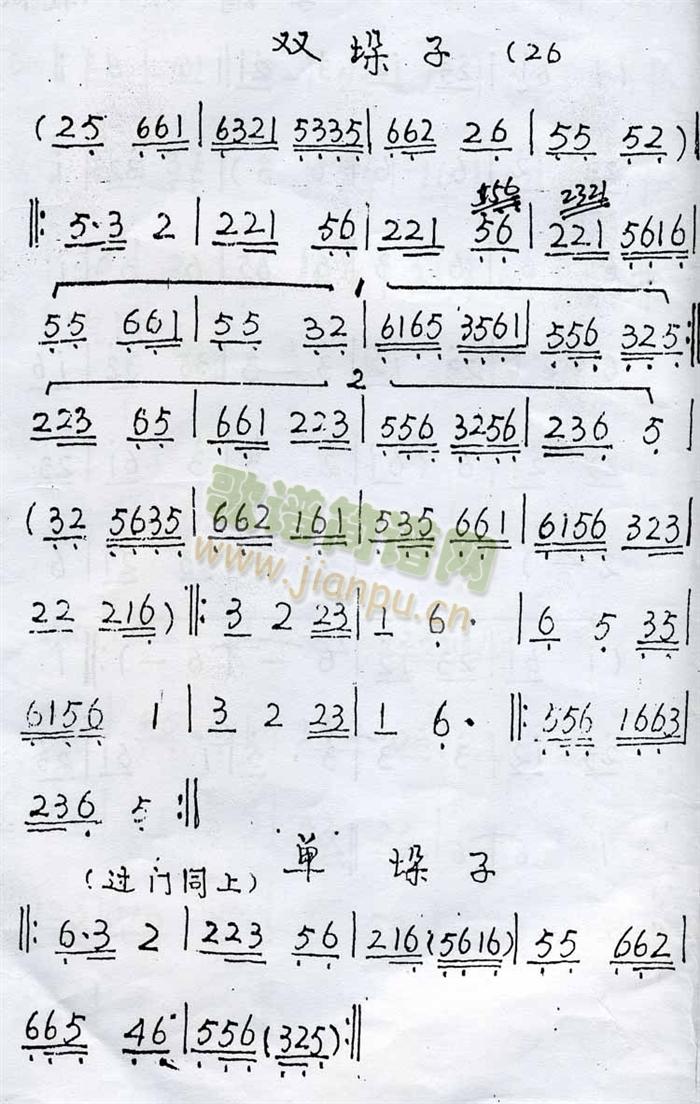 双 垛 子 (26
(25 661 | 6321 5335 | 662 26 | 55 52) |
156 2321
‖: 5·3 2 | 221 56 | 221 56 | 221 5616 |
1
55 661 | 55 32 | 6165 3561 | 556 325 :‖
2
223 65 | 661 223 | 556 3256 | 236 5 |
(32 5635 | 662 161 | 535 661 | 6156 323 |
歌谱简谱网
www.jianpu.cn
22 216) ‖: 3 2 23 | 1 6· | 6 5 35 |
6156 1 | 3 2 23 | 1 6· ‖: 556 1663 |
236 5 :‖
单 垛 子
(过门同上)
‖: 6·3 2 | 223 56 | 216 (5616) | 55 662 |
665 46 | 556 (325) :‖